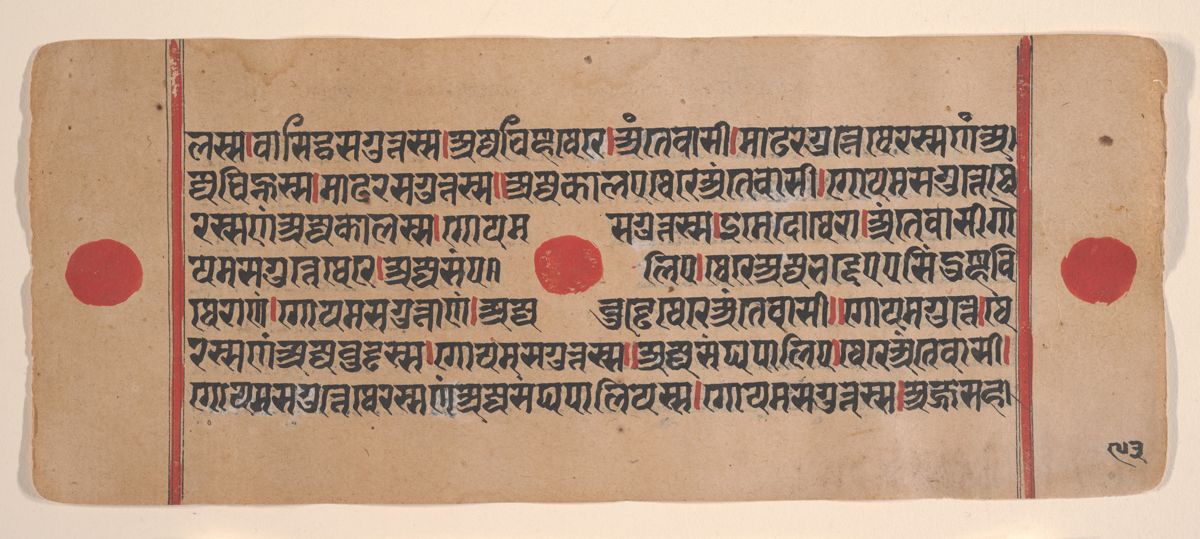 लस्स।वासिट्ठसगुत्तस्स।अज्जविण्हूथेरे।अंतेवासी।माढरगुत्तेथेरस्सणंअज्ज
विण्हुस्स।माढरसगुत्तस्स॥अज्जकालएथेरेअंतेवासी।गोयमसगुत्तेथे
रस्सणंअज्जकालस्स।गोयम सगुत्तस्स।इमेदोथेरा।अंतेवासीगो
यमसगुत्तेथेरे।अज्जसंप॥ लिए।थेरेअज्जभद्देएएसिंदुण्हवि
थेराणं।गोयमसगुत्ताणं।अज्ज वुड्ढेथेरेअंतेवासी॥गोयमगुत्ते।थे
रस्सणंअज्जवुड्ढस्स।गोयमसगुत्तस्स॥अज्जसंघपालिए।थेरेअंतेवासी।
गोयमसगुत्तेथेरस्सणंअज्जसंघपालियस्स।गोयमसगुत्तस्स।